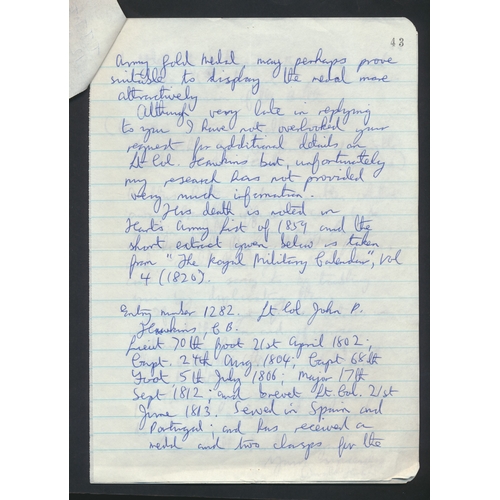 43
Army Gold Medal may perhaps prove
suitable to display the medal more
attractively
Although very late in replying
to you I have not overlooked your
request for additional details on
Lt Col. Hawkins but, unfortunately
my research has not provided
very much information.
His death is noted in
Harts Army List of 1859 and the
short extract given below is taken
from "The Royal Military Calendar", Vol
4 (1820).
Entry number 1282. Lt Col. John P.
Hawkins, C.B.
Lieut 70th foot 21st April 1802;
Capt. 24th Aug. 1804; Capt 68th
Foot, 5th July 1806; Major 17th
Sept 1812; and brevet Lt. Col. 21st
June 1813. Served in Spain and
Portugal; and has received a
medal and two clasps for the